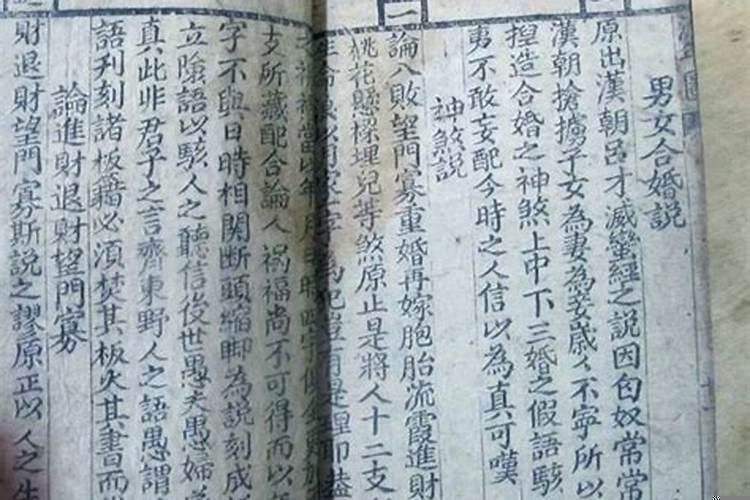 男女合婚説
原出漢朝呂才滅蠻經之説因匈奴常常
漢朝搶擄子女為妻為妾歳々不寧所以
捏造合婚之神煞上中下三婚之假語駭
夷不敢妄配今時之人信以為真可嘆
神煞説
論八敗望門寡重婚再嫁胞胎流霞進財
桃花懸樑埋兒等煞原止是將人十二支
支所藏配合論人禍福尚不可得而以
字不與日時相関断頭縮脚為説刻成
立隂語以駭人之聽信後世愚夫愚婦
真此非君子之言齊東野人之語愚謂
語刋刻諸板籍必湏焚其板火其書而
論進財退財望門寡
財退財望門寡斯説之謬原正以人之生